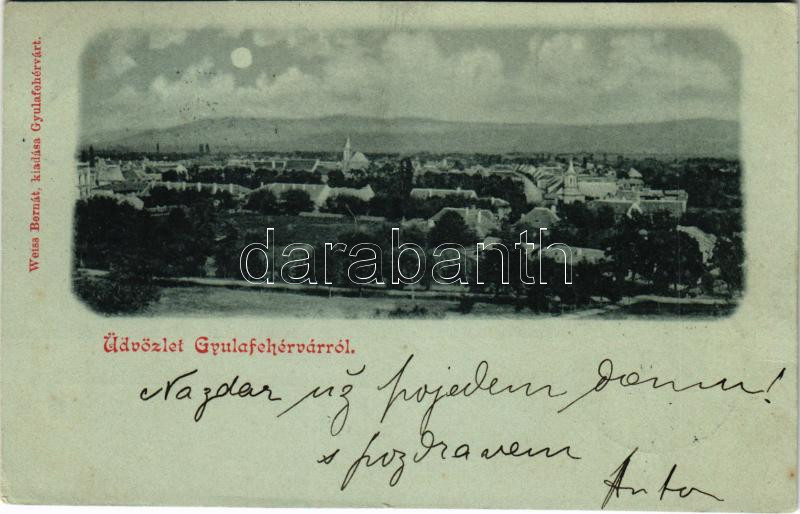 Weiss Bernát, kiadása Gyulafehérvárt.
darabanth
Üdvözlet Gyulafehérvárról.
Nazdar už pojedem domu!
s pozdravem
Anton